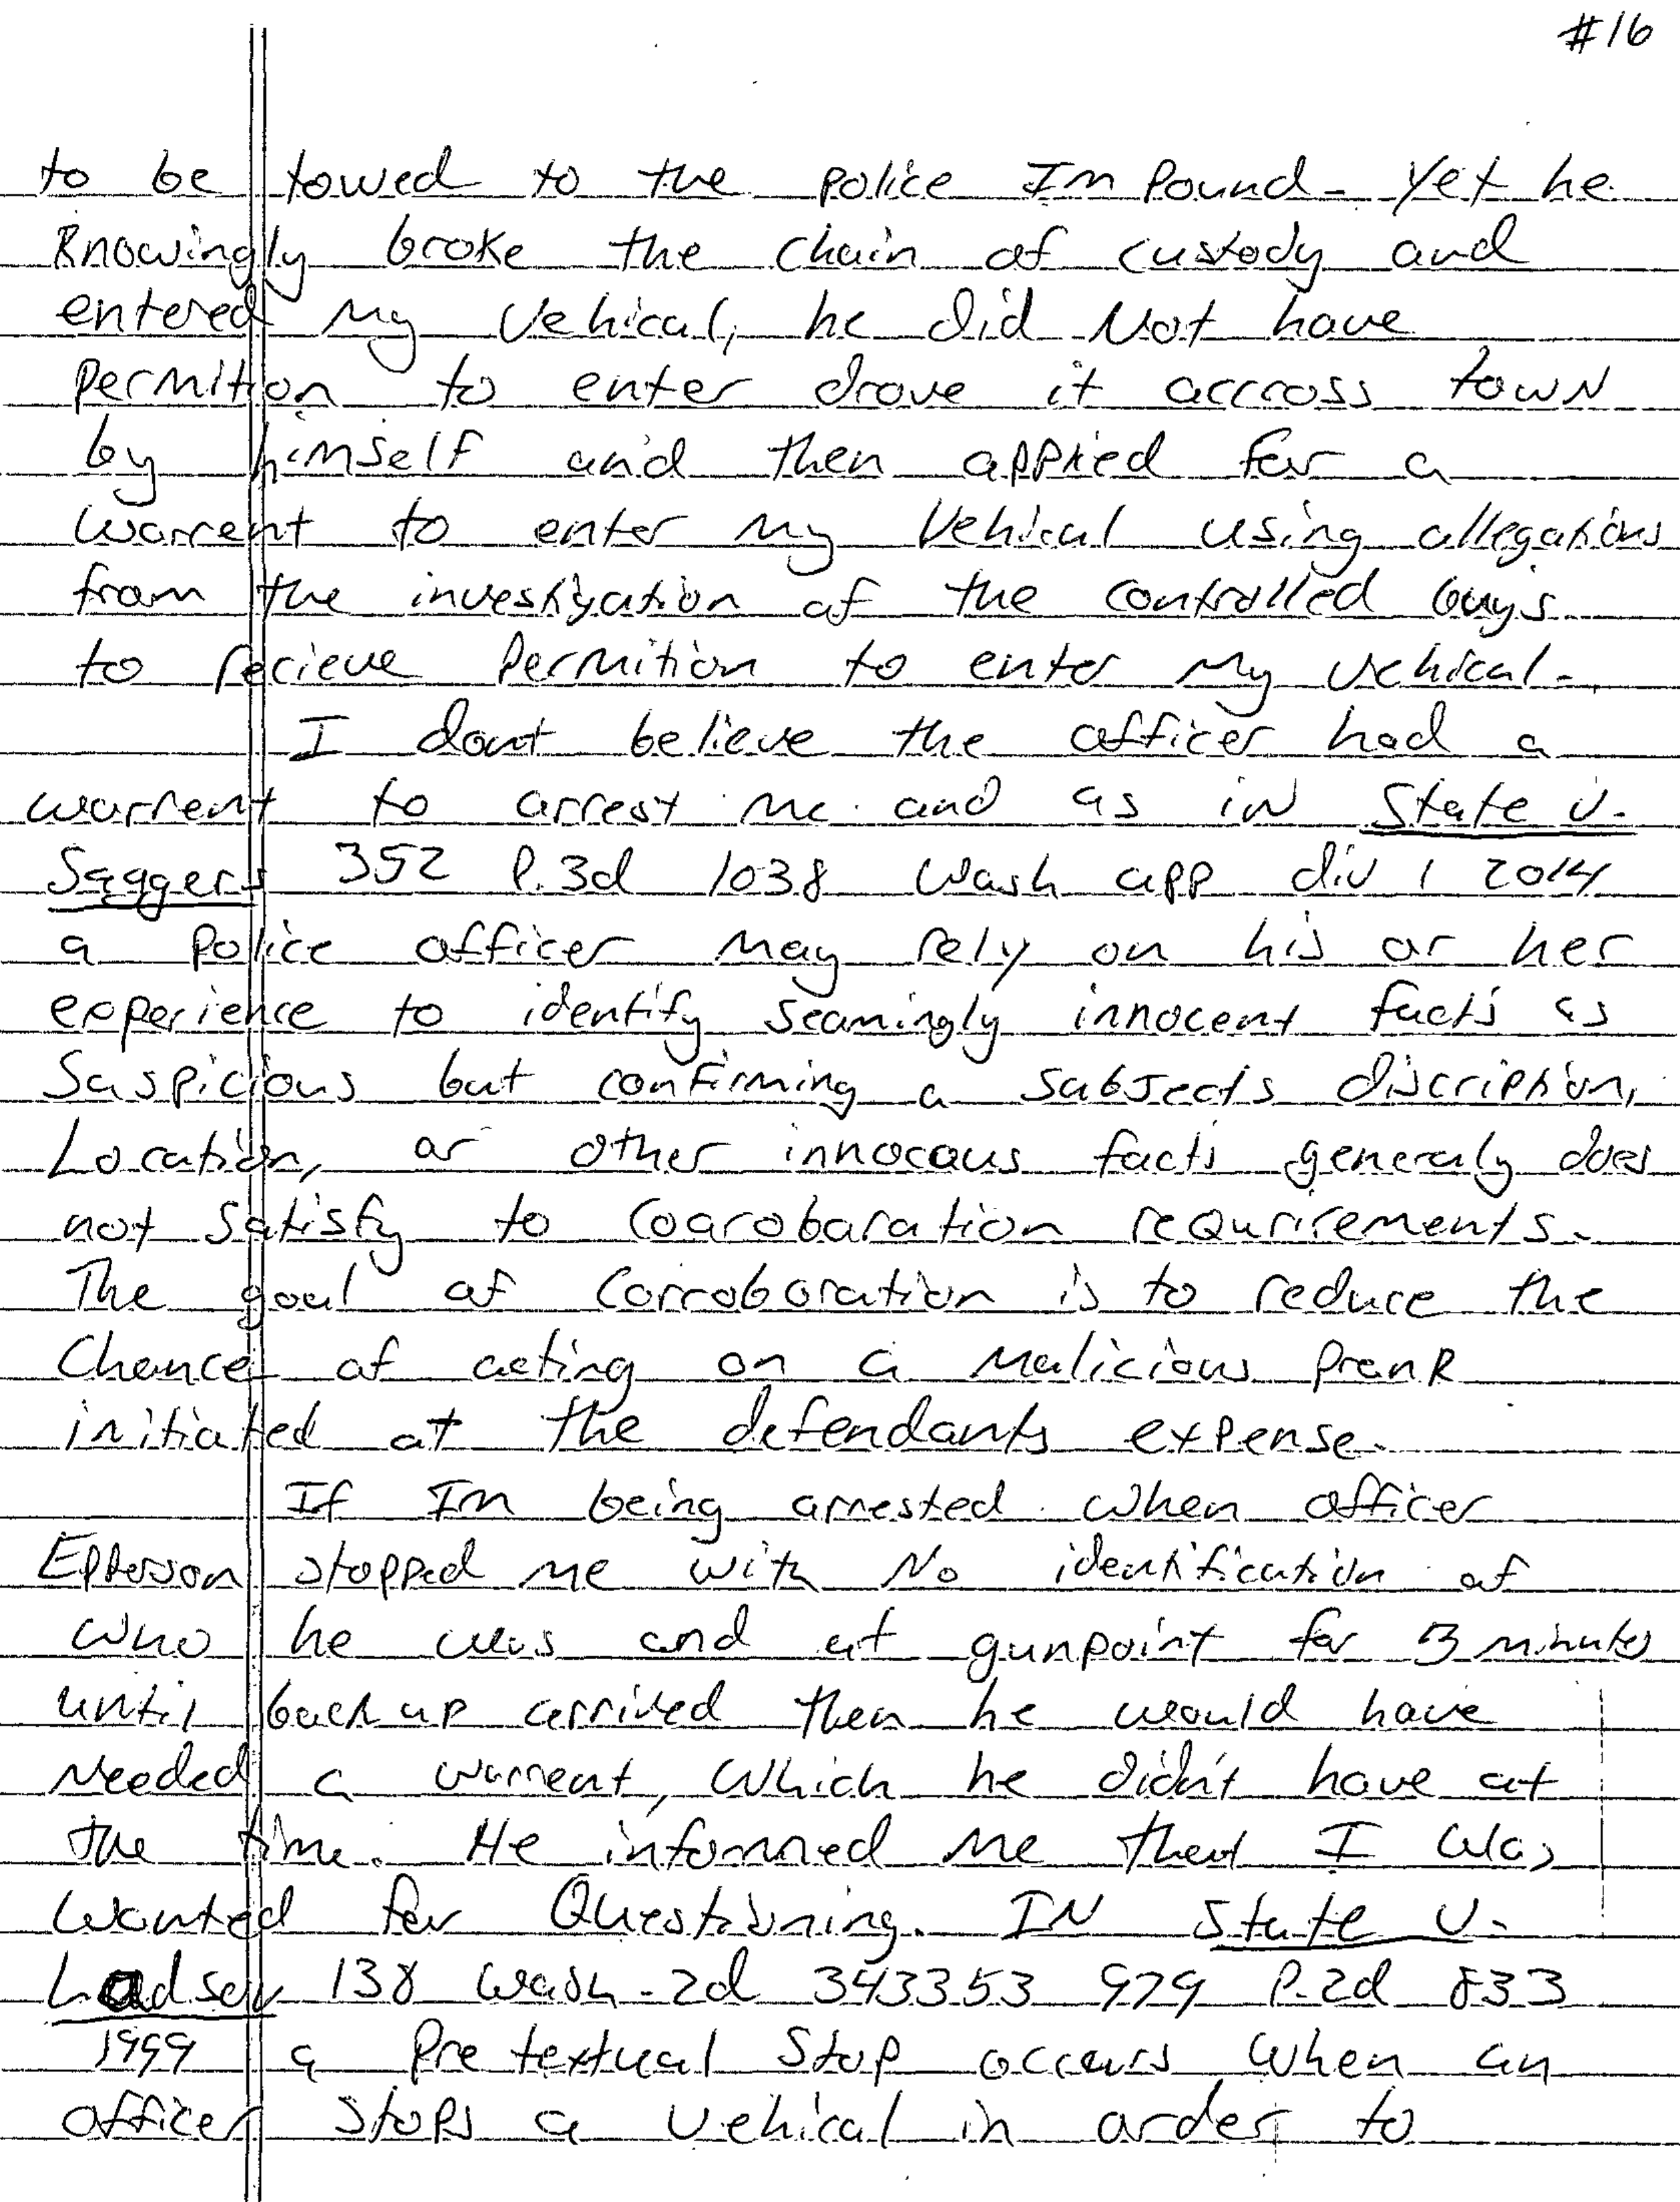 #16
to be towed to the police Impound. Yet he
Knowingly broke the chain of custody and
entered my Vehical, he did Not have
Permition to enter drove it accross town
by himself and then applied for a
warrent to enter my Vehical using allegations
from the investigation of the controlled buys
to recieve Permition to enter my vehical.
I dont believe the officer had a
warrent to arrest me and as in State v.
Saggers 352 P.3d 1038 Wash app div 1 2014
a police officer may rely on his or her
experience to identify seamingly innocent facts as
Suspicious but confirming a subjects discription,
Location, or other innocous facts generaly does
not satisfy to Coarobaration requrirements.
The goal of Corroboration is to reduce the
Chance of acting on a Malicious Prank
initiated at the defendants expense.
If Im being arrested when officer
Epperson stopped me with No identification of
who he was and at gunpoint for 3 minutes
until back up arrived then he would have
Needed a warrent, which he didn't have at
the time. He informed me that I was
Wanted for Questioning. IN State v.
Ladson 138 Wash.2d 343353 979 P.2d 833
1999 a Pretextual Stop occurs when an
officer stops a vehical in order to